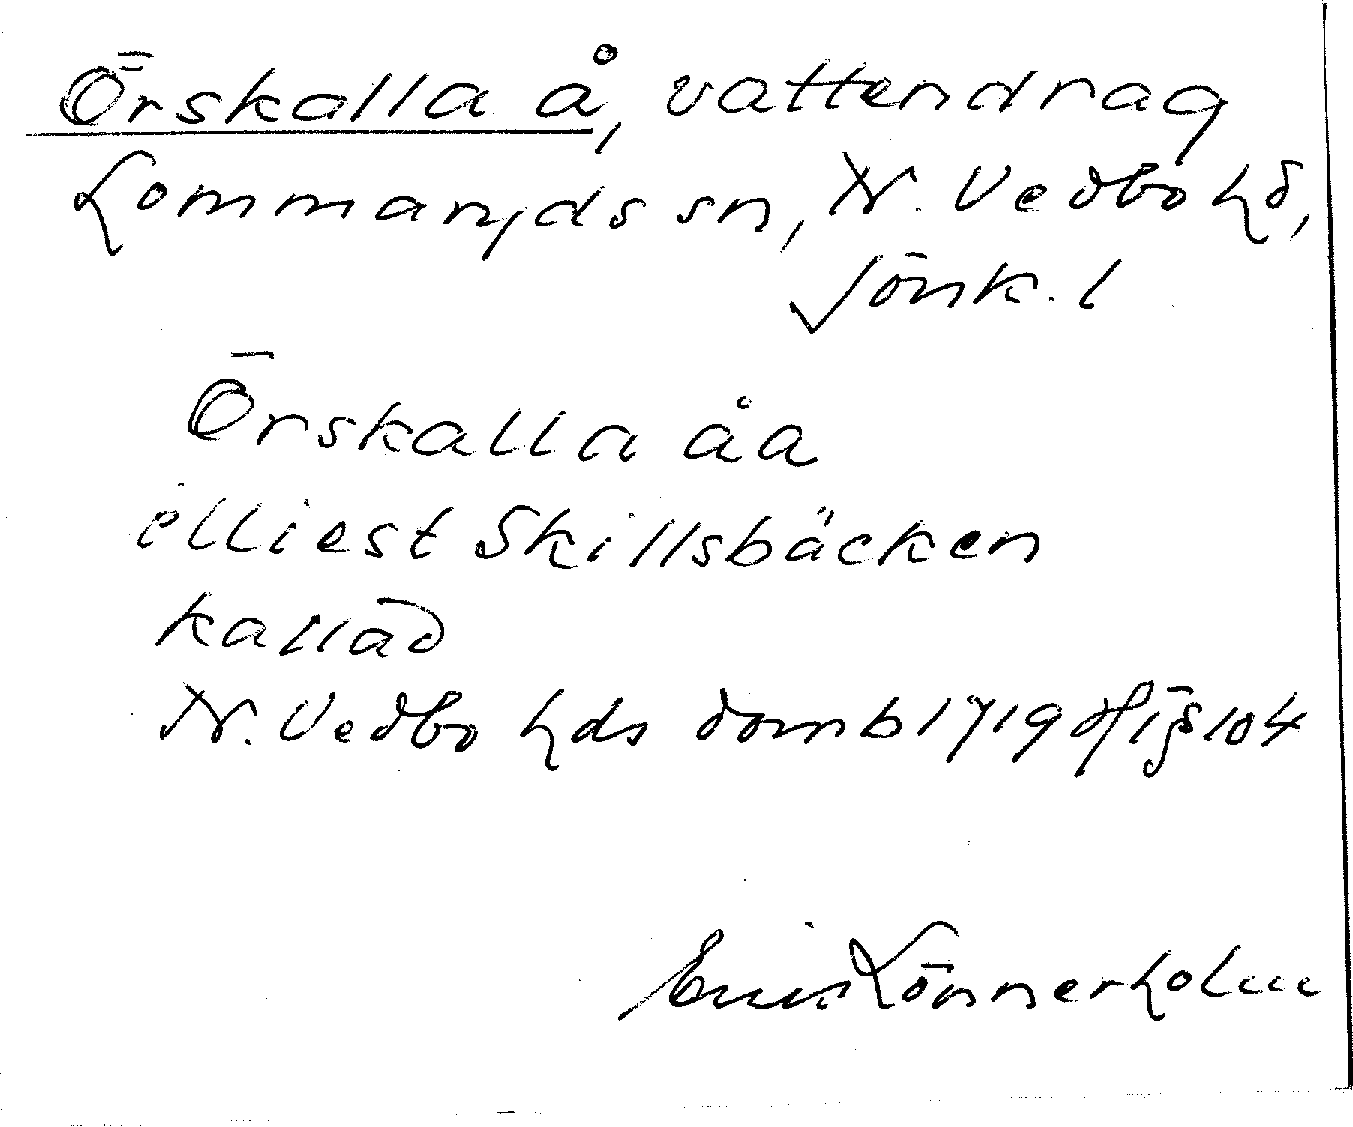 Örskalla å, vattendrag
Lommaryds sn, N. Vedbo hd,
Jönk. l
Örskalla åa
elliest Skillsbäcken
kallad
N. Vedbo hds domb 1719 § 104
Eric Lönnerholm